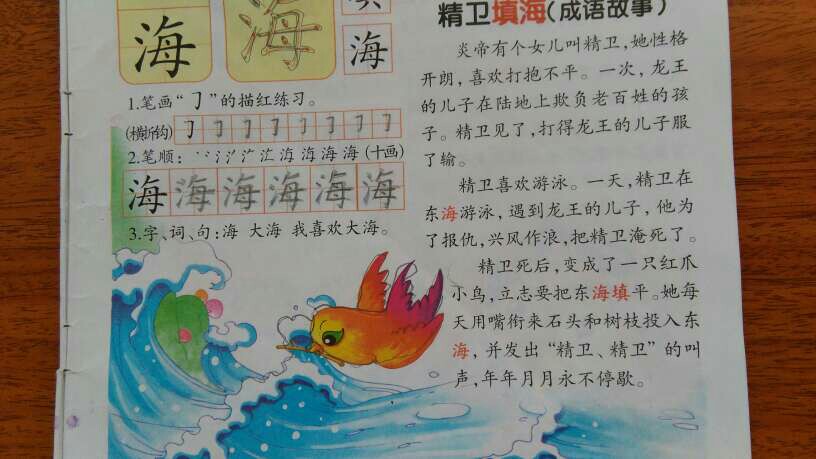 海 海
海
1.笔画“㇆”的描红练习。
(横折钩) ㇆ ㇆ ㇆ ㇆ ㇆ ㇆ ㇆ ㇆
2.笔顺：海 海 海 (十画)
海 海 海 海 海 海
3.字、词、句：海 大海 我喜欢大海。
精卫填海(成语故事)
炎帝有个女儿叫精卫，她性格
开朗，喜欢打抱不平。一次，龙王
的儿子在陆地上欺负老百姓的孩
子。精卫见了，打得龙王的儿子服
了输。
精卫喜欢游泳。一天，精卫在
东海游泳，遇到龙王的儿子，他为
了报仇，兴风作浪，把精卫淹死了。
精卫死后，变成了一只红爪
小鸟，立志要把东海填平。她每
天用嘴衔来石头和树枝投入东
海，并发出“精卫、精卫”的叫
声，年年月月永不停歇。